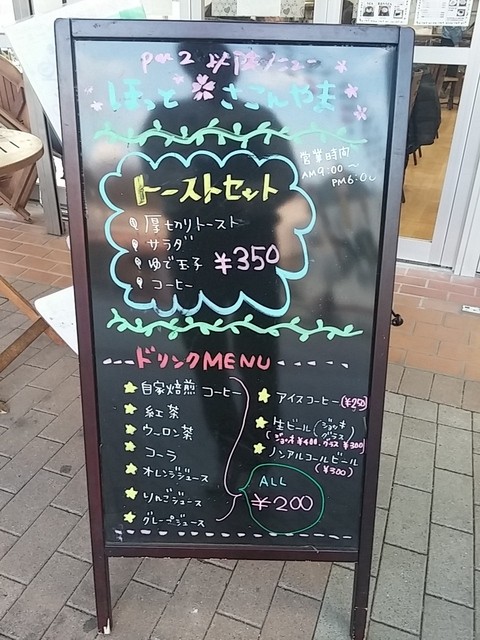 PM2以降メニュー
ほっと さこんやま
営業時間
AM9:00〜
PM6:00
トーストセット
厚切りトースト
サラダ
ゆで玉子
コーヒー
¥350
ドリンクMENU
自家焙煎コーヒー
紅茶
ウーロン茶
コーラ
オレンジジュース
りんごジュース
グレープジュース
ALL
¥200
アイスコーヒー(¥250)
生ビール(ジョッキ グラス)
(ジョッキ¥400、グラス¥300)
ノンアルコールビール
(¥300)